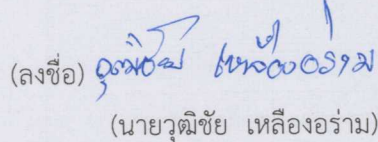 (ลงชื่อ) วุฒิชัย เหลืองอร่าม
(นายวุฒิชัย เหลืองอร่าม)